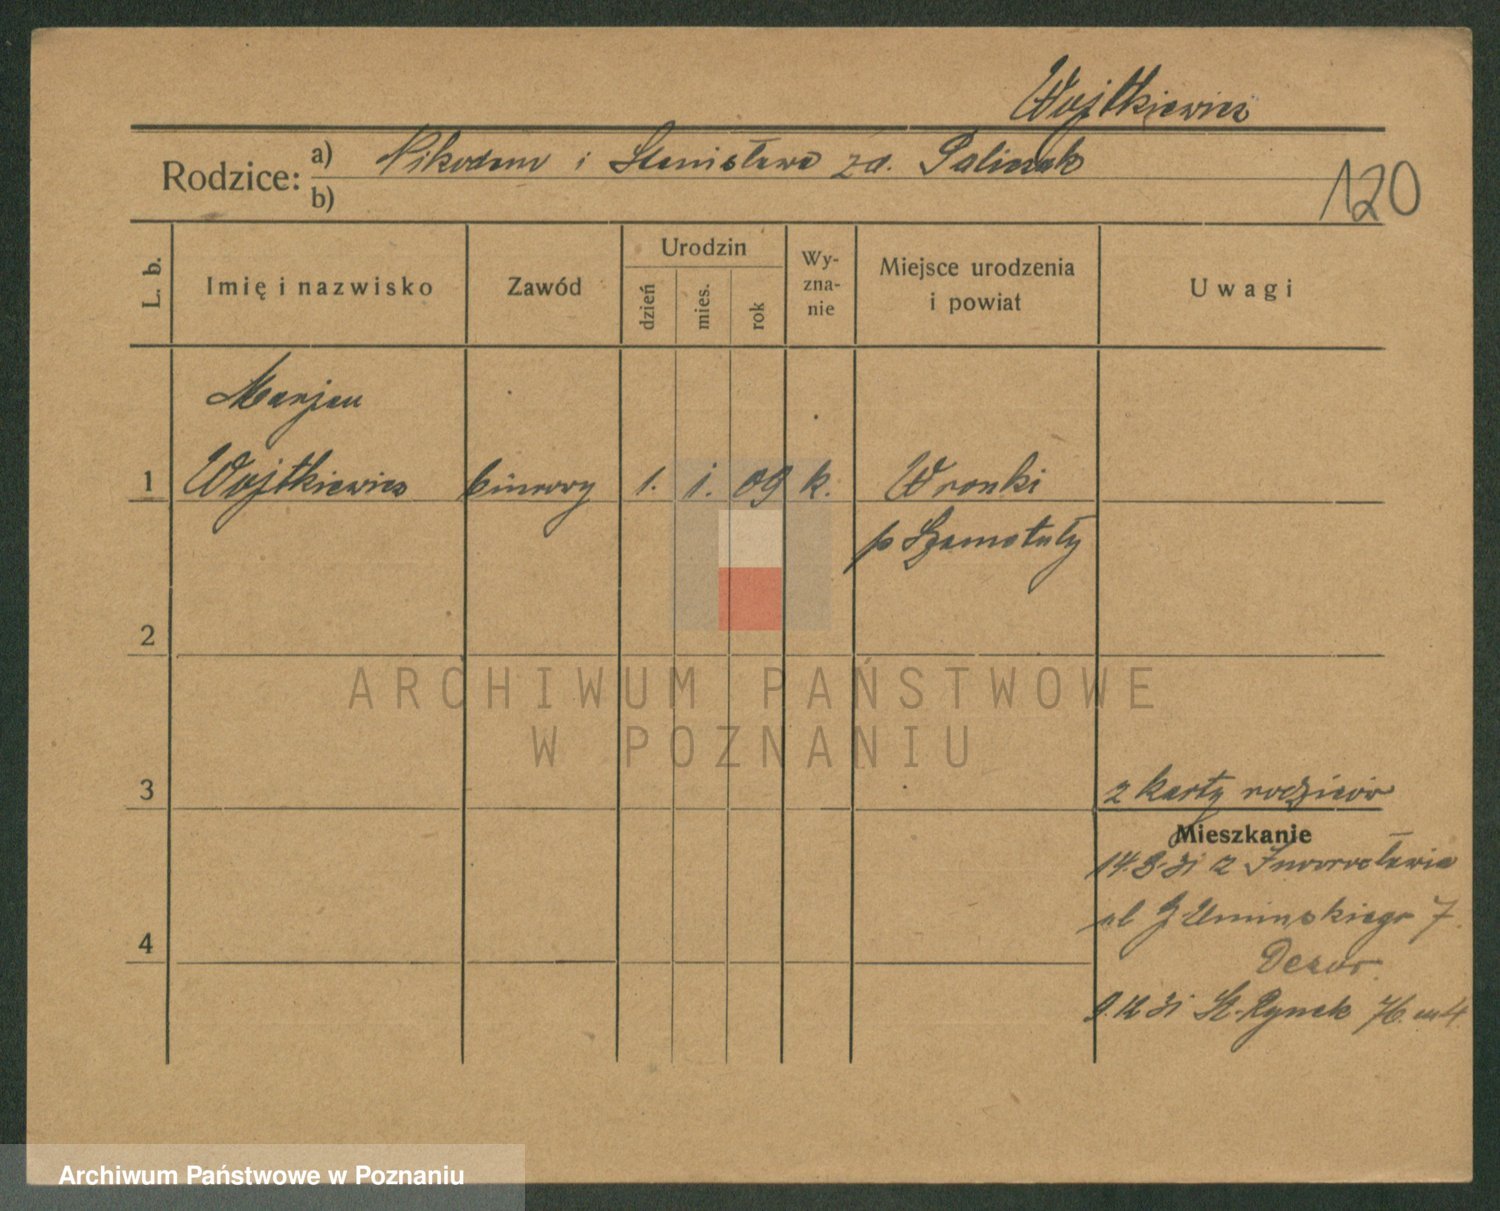 Wojtkiewicz
Rodzice: a) Nikodem i Stanisława zd. Paliczak
b)
120
L. b.
Imię i nazwisko
Zawód
Urodzin
dzień
mies.
rok
Wy-
zna-
nie
Miejsce urodzenia
i powiat
Uwagi
Marjan
1 Wojtkiewicz biurowy 1. 1. 09 k. Wronki
p Szamotuły
2
ARCHIWUM PAŃSTWOWE
W POZNANIU
3
z karty rodziców
Mieszkanie
14.8.31 z Inowrocławia
ul J Umińskiego 7
4
9.12 31 St. Rynek 76 m 4
Archiwum Państwowe w Poznaniu